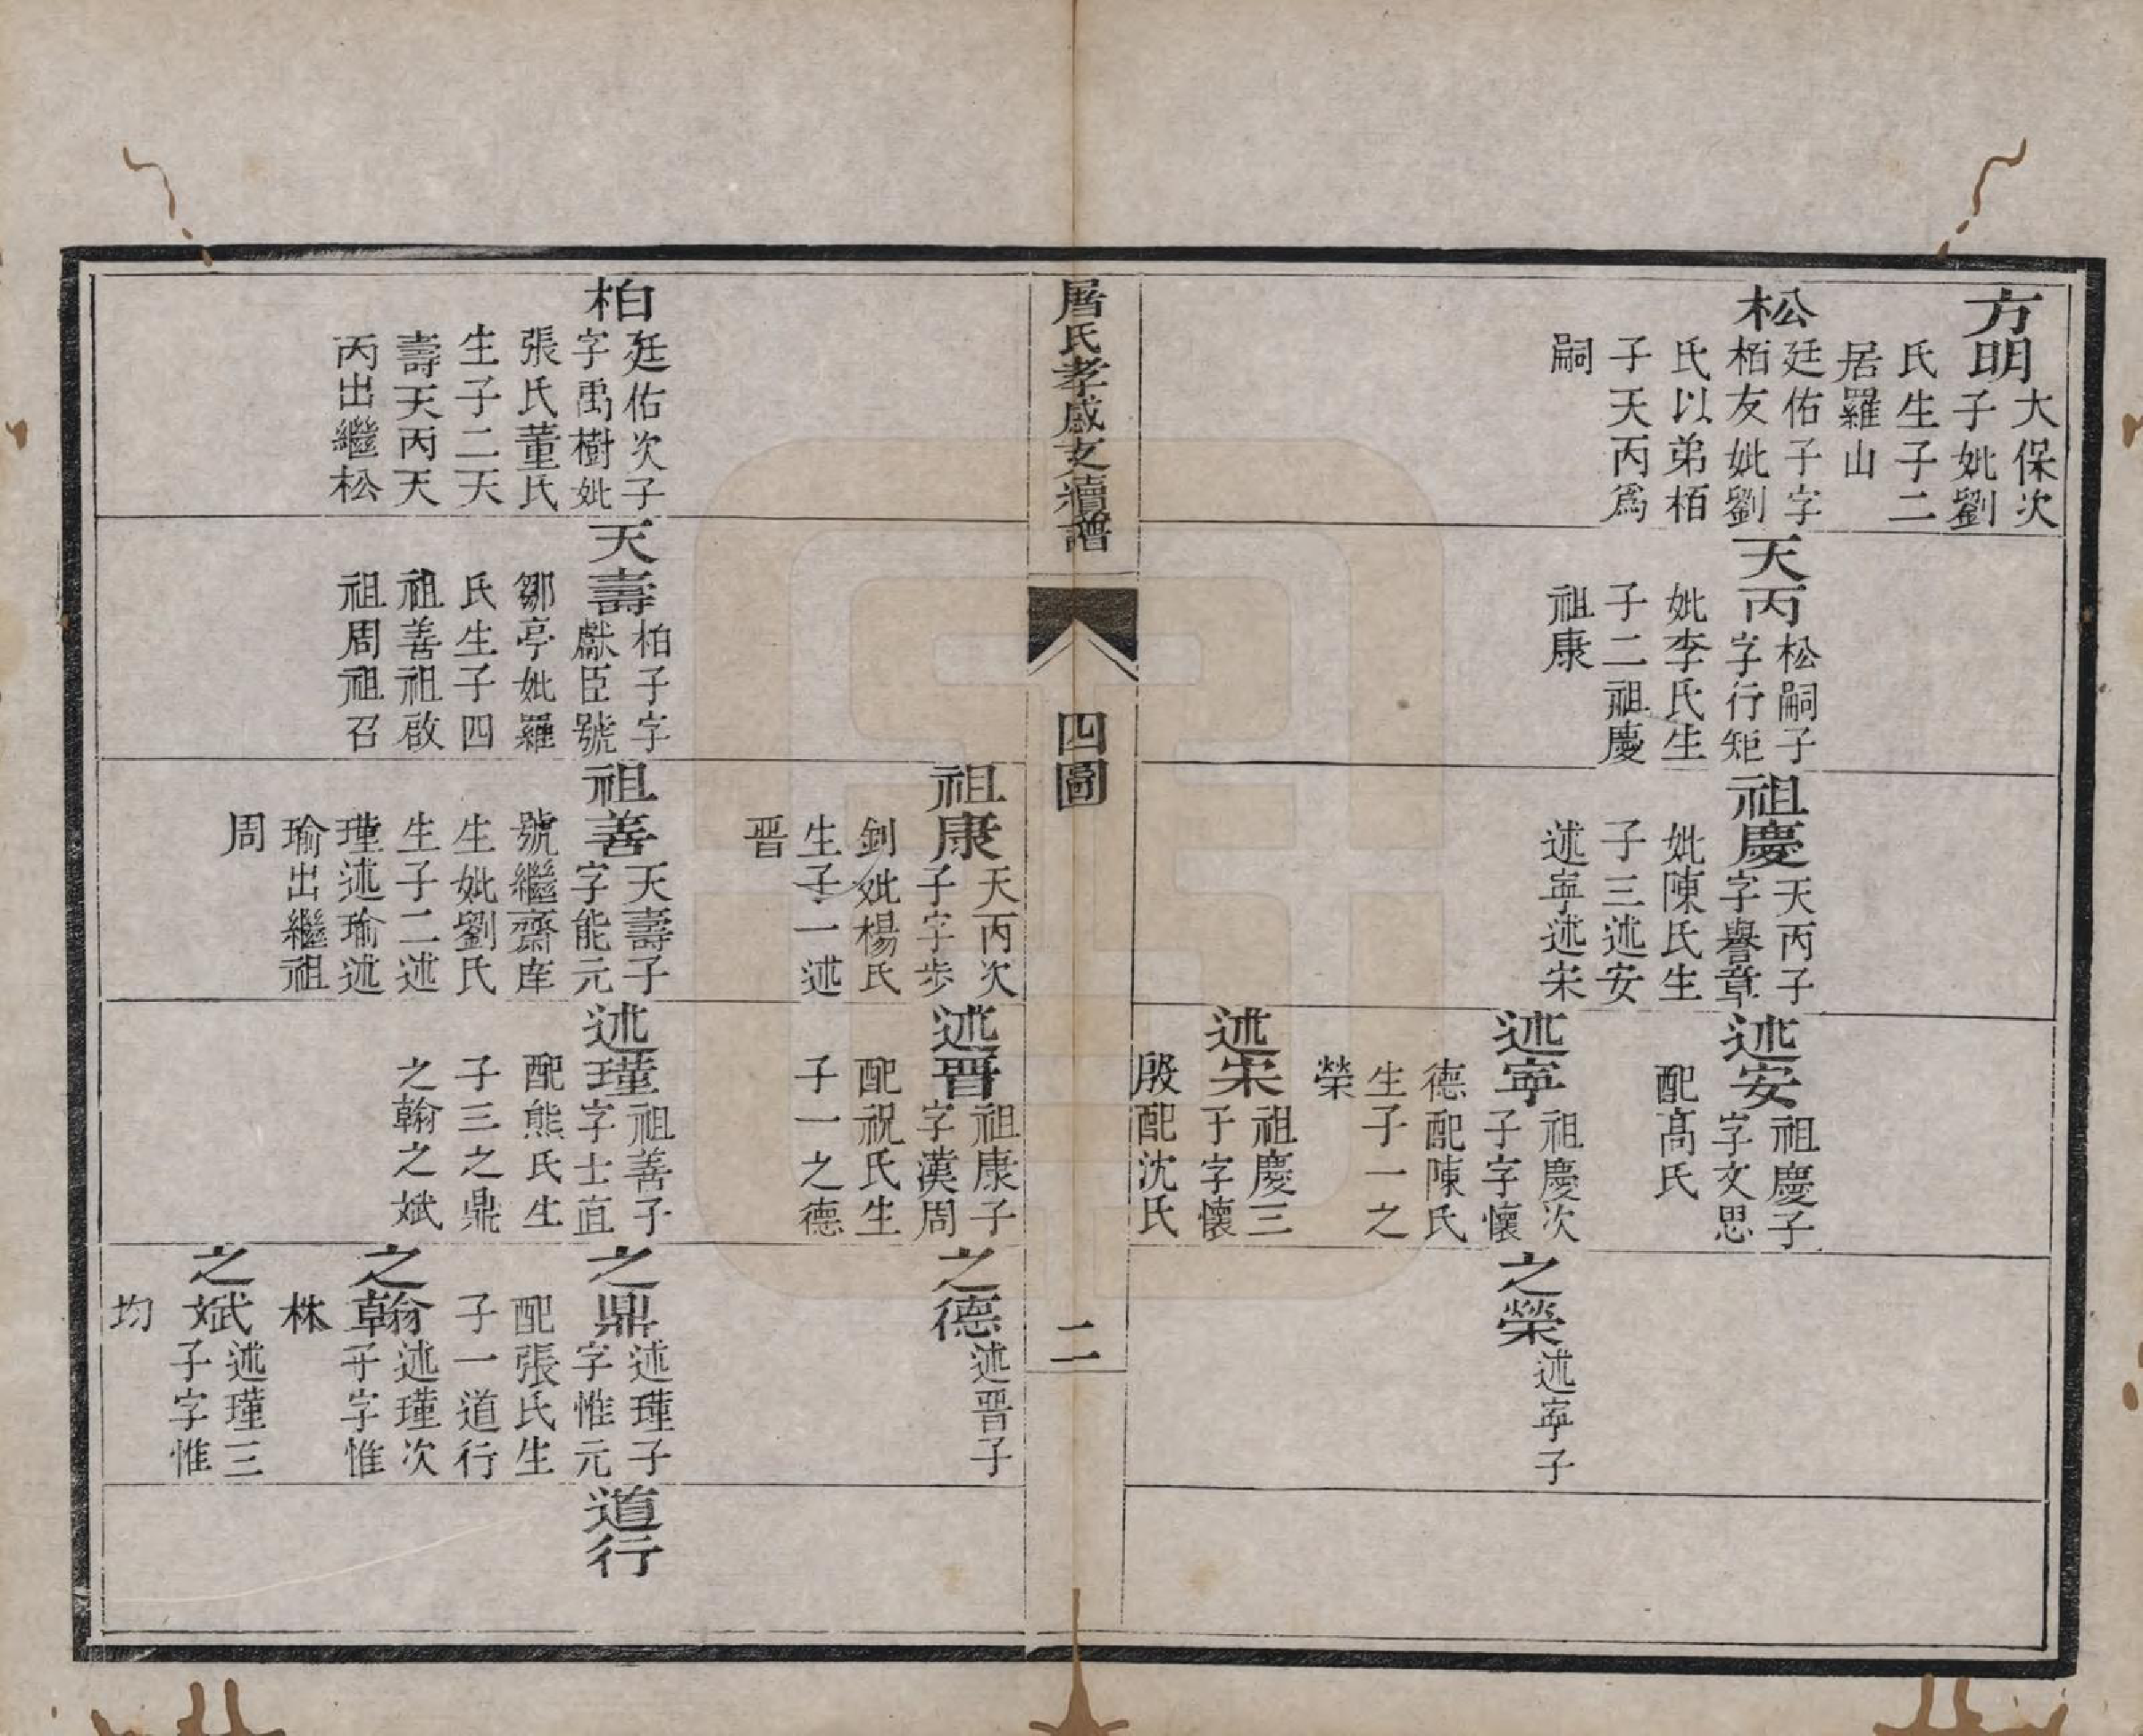 方明
大保次
子妣劉
氏生子二
居羅山
松
廷佑子字
栢友妣劉
氏以弟栢
子天丙爲
嗣
天丙
松嗣子
字行矩
妣李氏生
子二祖慶
祖康
祖慶
天丙子
字譽章
妣陳氏生
子三述安
述寍述宋
述安
祖慶子
字文思
配髙氏
述寍
祖慶次
子字懷
德配陳氏
生子一之
榮
述宋
祖慶三
子字懷
殷配沈氏
之榮
述寍子
屠氏孝感支續譜
四圖
二
祖康
天丙次
子字步
釗妣楊氏
生子一述
晋
述晋
祖康子
字漢周
配祝氏生
子一之德
之德
述晋子
柏
廷佑次子
字禹樹妣
張氏董氏
生子二天
壽天丙天
丙出繼松
天壽
柏子字
獻臣號
鄒亭妣羅
氏生子四
祖善祖啟
祖周祖召
祖善
天壽子
字能元
號繼齋庠
生妣劉氏
生子二述
瑾述瑜述
瑜出繼祖
周
述瑾
祖善子
字士直
配熊氏生
子三之鼎
之翰之斌
之鼎
述瑾子
字惟元
配張氏生
子一道行
之翰
述瑾次
子字惟
株
之斌
述瑾三
子字惟
均
道行